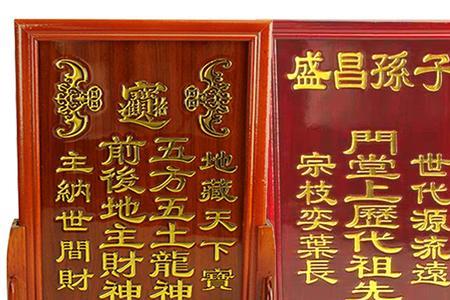 招財進寶
地藏天下寶
五方五土龍神
前後地主財神
主納世間財
子孫昌盛
世代源流遠
門堂上歷代祖先
宗枝奕葉長